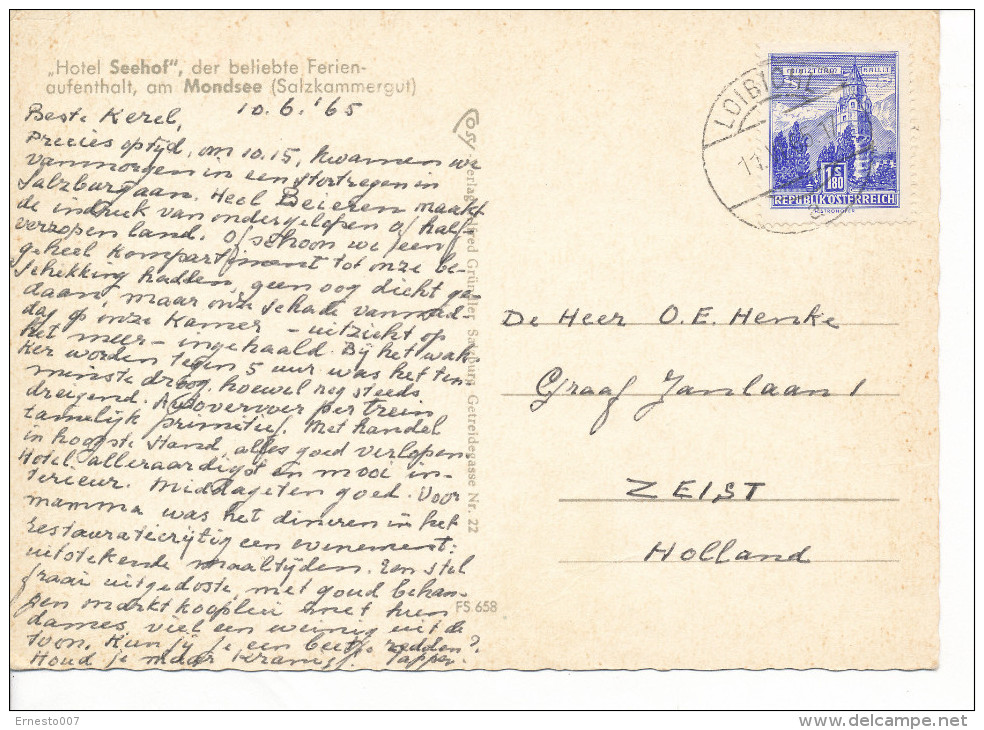 „Hotel Seehof", der beliebte Ferien-
aufenthalt, am Mondsee (Salzkammergut)
10.6.'65
Beste Kerel,
Precies optijd, om 10.15, kwamen we
vanmorgen in een stortregen in
Salzburg aan. Heel Beieren maakt
de indruk van ondergelopen of half
verzopen land. Ofschoon we een
geheel kompartiment tot onze be-
schikking hadden, geen oog dicht ge-
daan, maar onze schade vanmid-
dag op onze kamer - uitzicht op
het meer - ingehaald. Bij het wak-
ker worden tegen 5 uur was het ten
minste droog, hoewel nog steeds
dreigend. Autovervoer per trein
tamelijk primitief. Met handel
in hoogste stand, alles goed verlopen.
Hotel alleraardigst en mooi in-
terieur. Middageten goed. Voor
mamma was het dineren in het
restauratierijtuig een evenement:
uitstekende maaltijden. Een stel
fraai uitgedoste, met goud behan-
gen marktkooplui met hun
dames, viel een weinig uit de
toon. Kun jij je een beetje redden?
Houd je maar kranig! Pappa.
Verlag Alfred Gründler Salzburg Getreidegasse Nr. 22
FS 658
LOIBICHL
REPUBLIK ÖSTERREICH
1 S 80
De Heer O.E. Henke
Graaf Janlaan 1
ZEIST
Holland
Ernesto007
delcampe.net